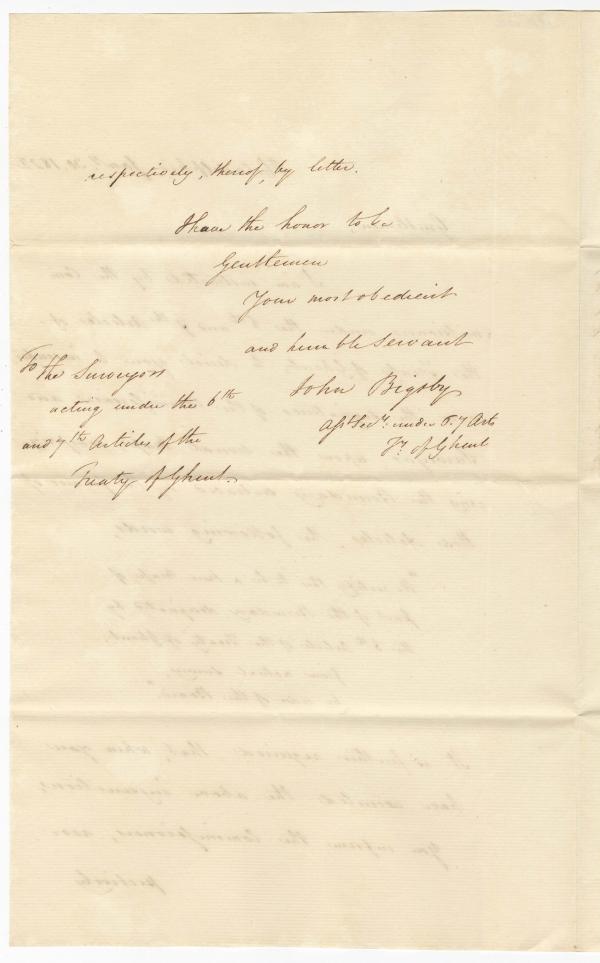 respectively, thereof, by letter.
I have the honor to be
Gentlemen
Your most obedient
and humble Servant
John Bigsby
Asst Secy. under 6.7 Arts
Ty. of Ghent
To
the Surveyors
acting under the 6th
and 7th Articles of the
Treaty of Ghent.